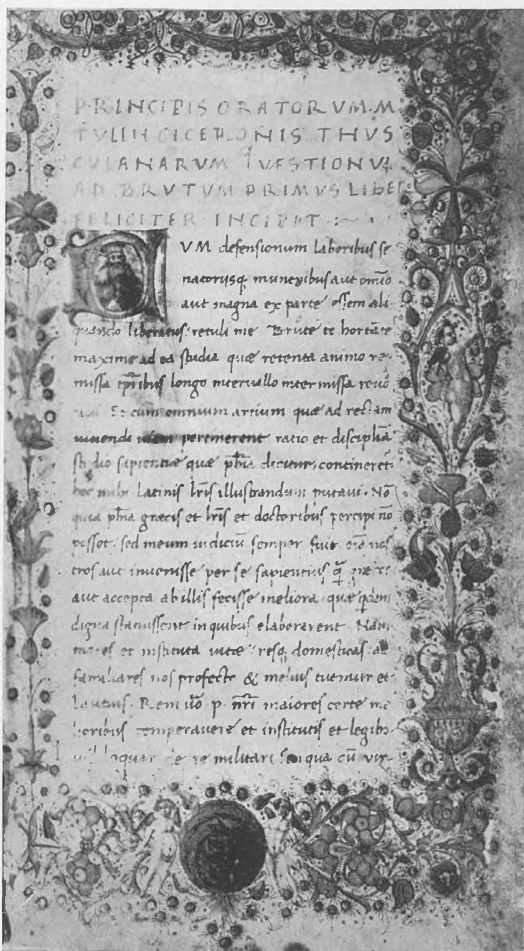 PRINCIPIS ORATORVM. M
TVLII CICERONIS THUS
CVLANARVM QVESTIONV
AD BRVTVM PRIMVS LIBER
FELICITER INCIPIT
VM defensionum laboribus se
natoriisq muneribus aut omnio
aut magna ex parte essem ali
quando liberatus: retuli me Brute te hortate
maxime ad ea studia que retenta animo re
missa tpribus longo intervallo intermissa revo
Et cum omnium artium que ad rectam
vivendi viam pertinerent ratio et disciplia
studio sapientie que phia dicitur, contineret
hoc mihi Latinis lris illustrandum putavi. Nō
quia phia grecis et lris et doctoribus percipi nō
posset: sed meum iudiciū semper fuit oīa nos
tros aut invenisse per se sapientius q̄ grecos
aut accepta ab illis fecisse meliora, que quidem
digna statuissent in quibus elaborarent. Nam
mores et instituta vite, resq domesticas ac
familiares nos profecto & melius tuemur et
lautius. Rem ūo p. nri maiores certe me
lioribus temperavere et institutis et legibus
loquar de re militari in qua cū vir